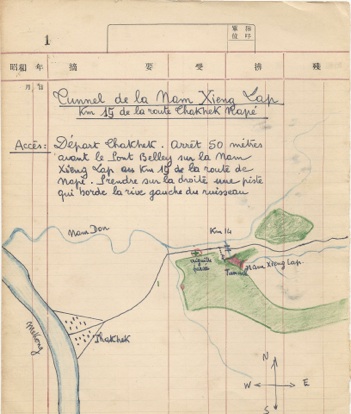 1
昭和 年 摘 要 受 拂 殘
月 日
Tunnel de la Nam Xieng Lap
Km 15 de la route Thakhek Napé
Accès: Départ Thakhek. Arrêt 50 mètres
avant le Pont Belley sur la Nam
Xieng Lap au Km 15 de la route de
Napé. Prendre sur la droite une piste
qui borde la rive gauche du ruisseau
Nam Don
Km 14
Tunnel
Nam Xieng Lap.
Mekong
Thakhek
N
W E
S